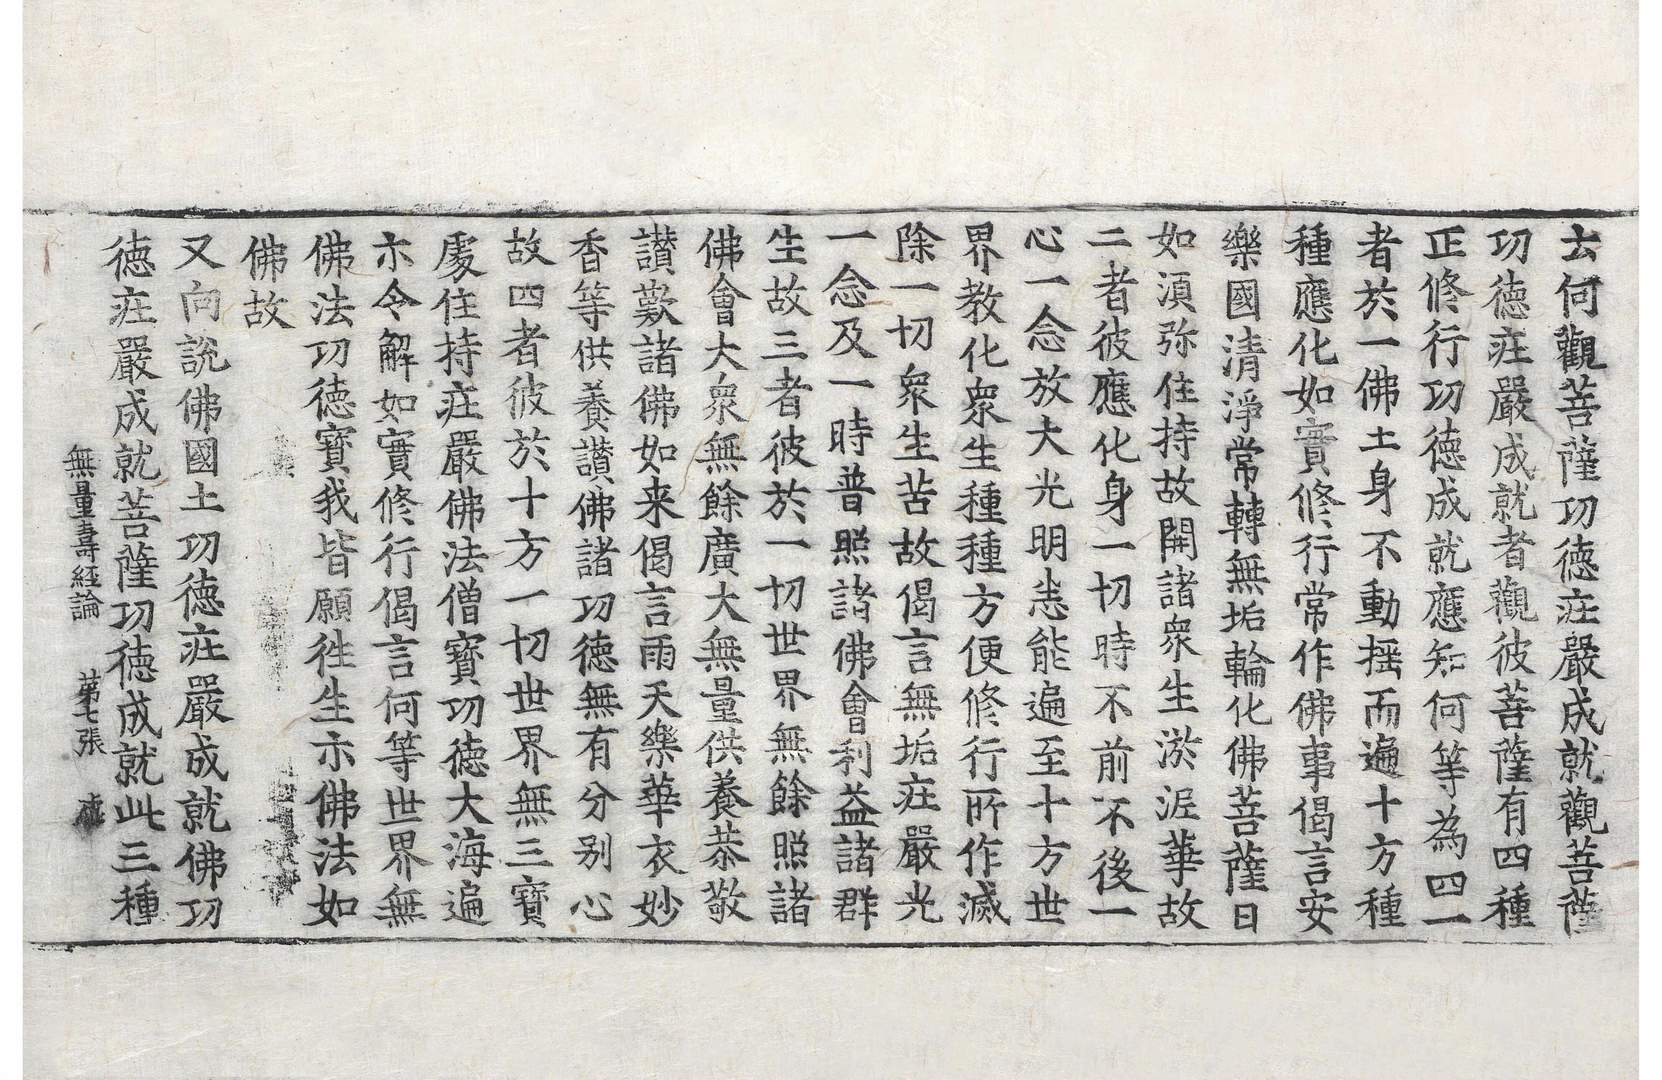 云何觀菩薩功德庄嚴成就觀菩薩
功德庄嚴成就者觀彼菩薩有四種
正修行功德成就應知何等為四一
者於一佛土身不動揺而遍十方種
種應化如實修行常作佛事偈言安
樂國清淨常轉無垢輪化佛菩薩日
如湏弥住持故開諸衆生淤泥華故
二者彼應化身一切時不前不後一
心一念放大光明悉能遍至十方世
界教化衆生種種方便修行所作滅
除一切衆生苦故偈言無垢庄嚴光
一念及一時普照諸佛會利益諸群
生故三者彼於一切世界無餘照諸
佛會大衆無餘廣大無量供養恭敬
讃歎諸佛如来偈言雨天樂華衣妙
香等供養讃佛諸功徳無有分别心
故四者彼於十方一切世界無三寶
處住持庄嚴佛法僧寶功徳大海遍
示令解如實修行偈言何等世界無
佛法功徳寶我皆願徃生示佛法如
佛故
又向説佛國土功徳庄嚴成就佛功
徳庄嚴成就菩薩功徳成就此三種
無量壽経論 苐七張